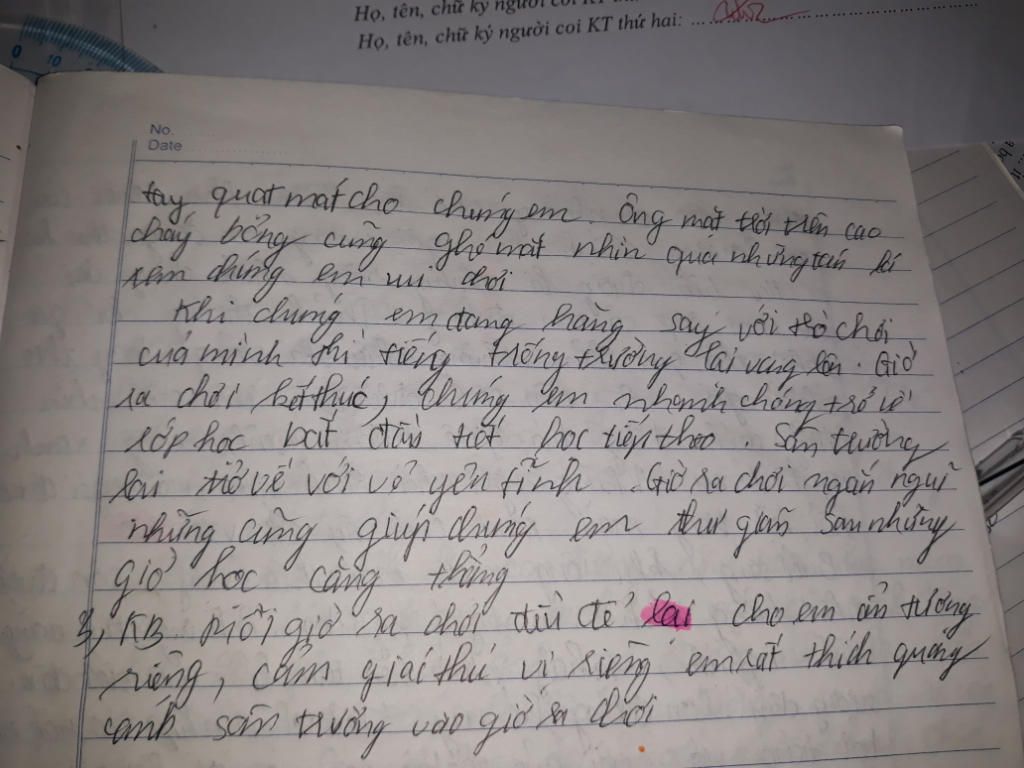 Họ, tên, chữ ký người coi KT thứ
Họ, tên, chữ ký người coi KT thứ hai:
0 10
No.
Date
tay quạt mát cho chúng em. Ông mặt trời trên cao
cháy bỏng cũng ghé mắt nhìn qua những tán lá
xem chúng em vui chơi
Khi chúng em đang hăng say với trò chơi
của mình thì tiếng trống trường lại vang lên. Giờ
ra chơi kết thúc, chúng em nhanh chóng trở về
lớp học bắt đầu tiết học tiếp theo. Sân trường
lại trở về với vẻ yên tĩnh. Giờ ra chơi ngắn ngủi
nhưng cũng giúp chúng em thư giãn sau những
giờ học căng thẳng
3, KB Mỗi giờ ra chơi đều để lại cho em ấn tượng
riêng, cảm giác thú vị riêng em rất thích quang
cảnh sân trường vào giờ ra chơi